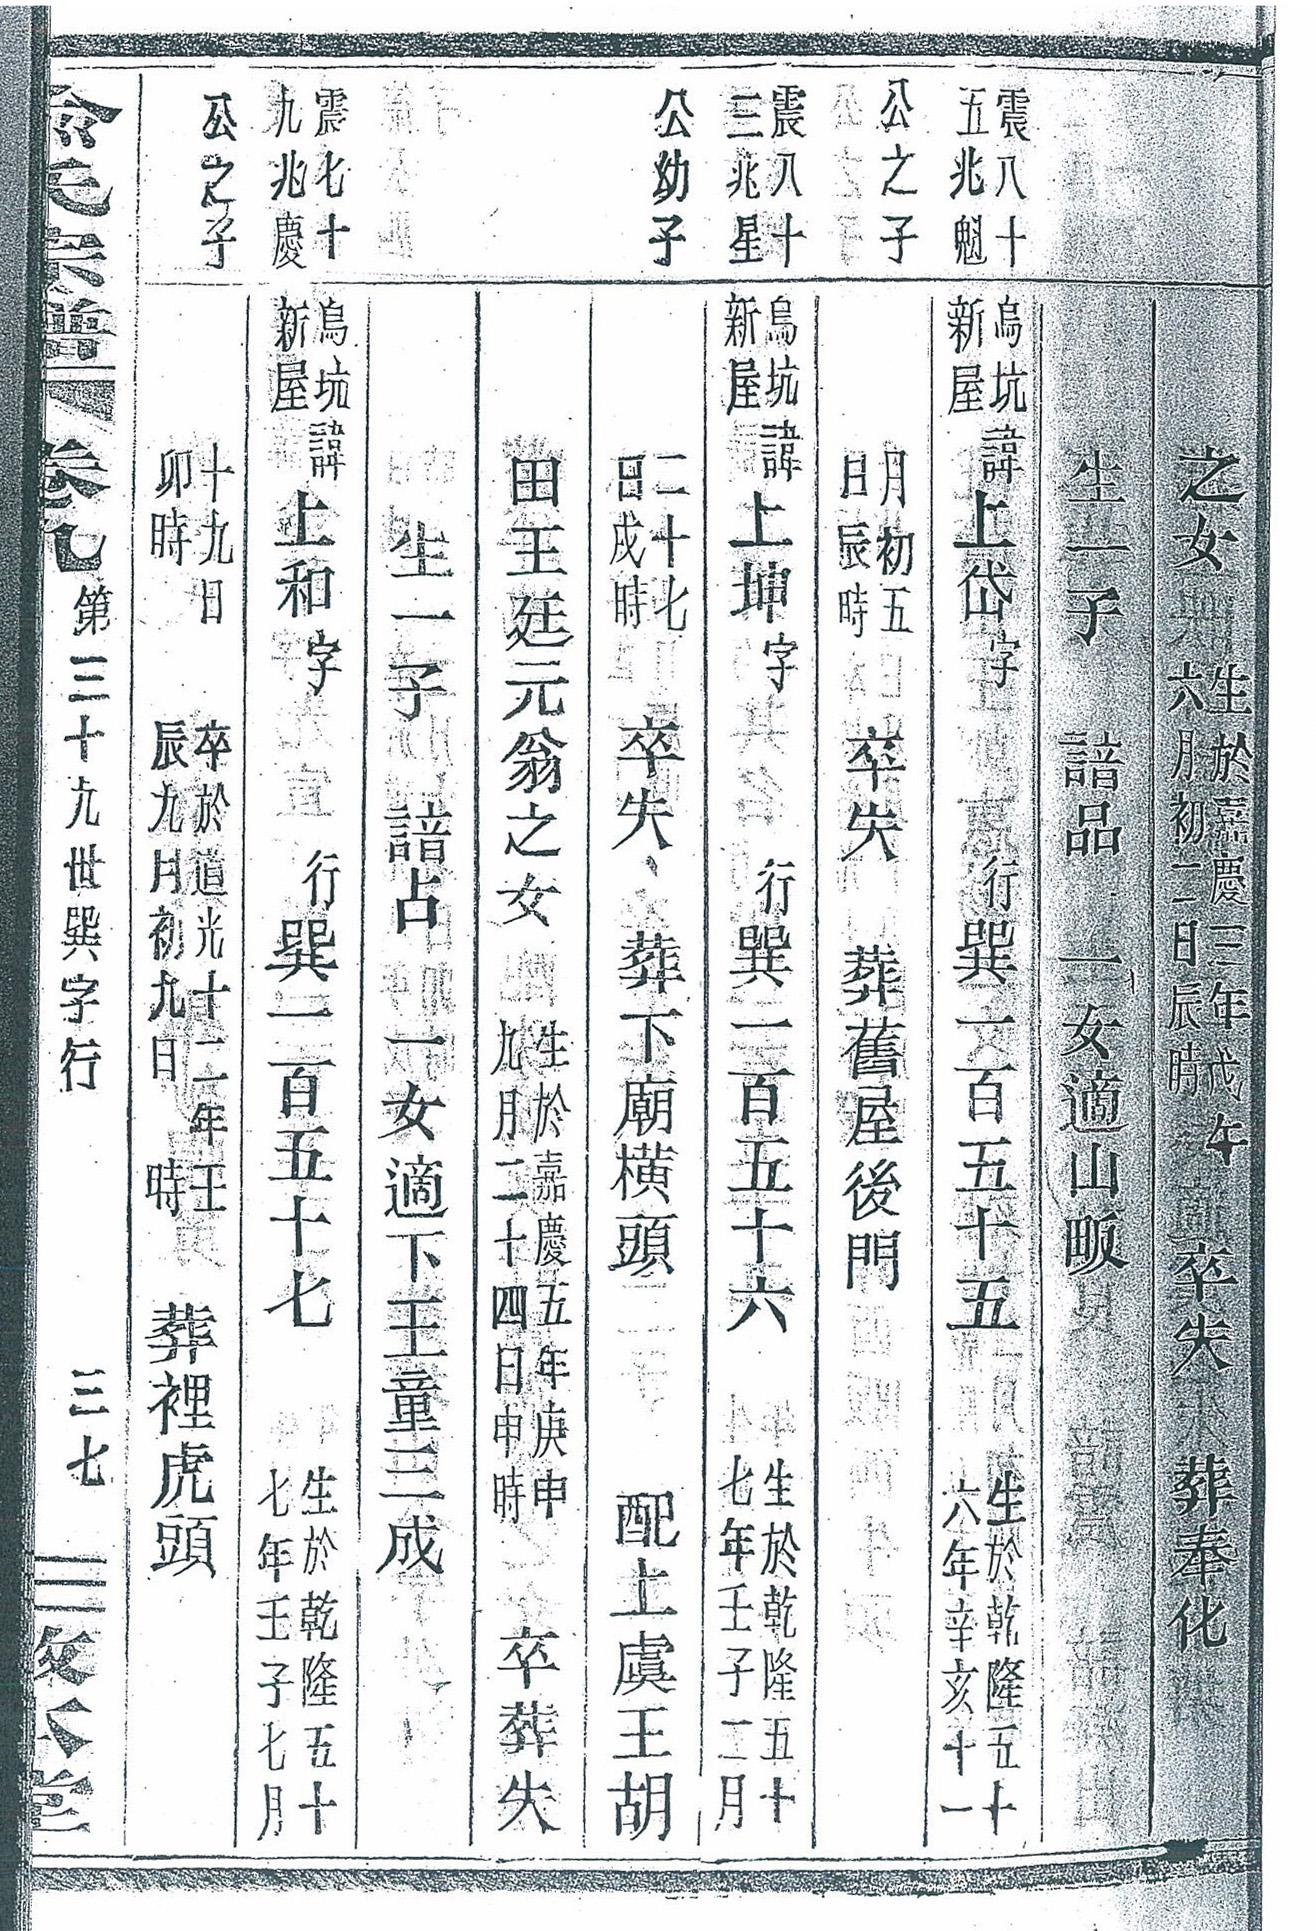 之女 生於嘉慶三年戊午六月初二日辰時 卒失 葬奉化
生一子 諳品 一女適山畈
震八十五兆魁
烏坑新屋 諱上岱字 行巽一百五十五 生於乾隆五十六年辛亥十一
公之子
月初五日辰時 卒失 葬舊屋後門
震八十三兆星
烏坑新屋 諱上坤字 行巽一百五十六 生於乾隆五十七年壬子二月
公幼子
二十七日戌時 卒失 葬下廟橫頭 配上虞王胡
田王廷元翁之女 生於嘉慶五年庚申九月二十四日申時 卒葬失
生一子 諳占 一女適下王童三成
震七十九兆慶
烏坑新屋 諱上和字 行巽一百五十七 生於乾隆五十七年壬子七月
公之子
十九日卯時 卒於道光十二年壬辰九月初九日 時 葬裡虎頭
氏宗譜 卷九 第三十九世巽字行 三七 堂